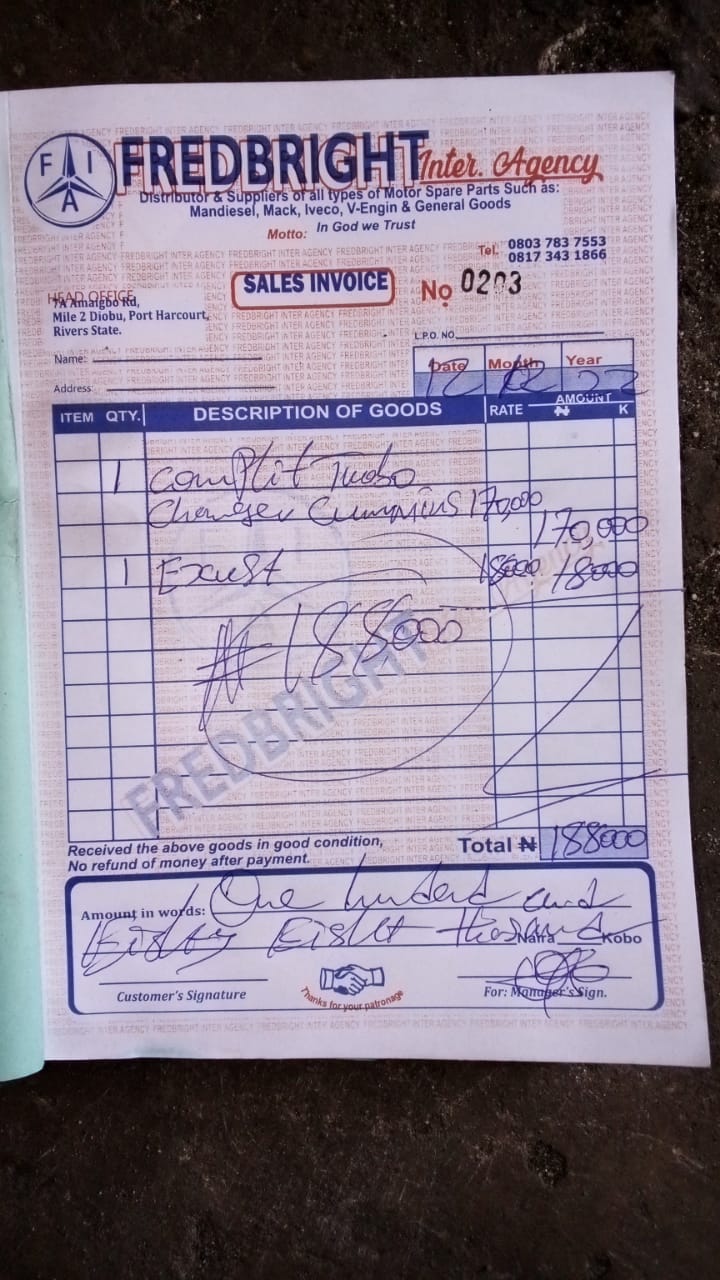 F I A
FREDBRIGHT Inter. Agency
Distributor & Suppliers of all types of Motor Spare Parts Such as:
Mandiesel, Mack, Iveco, V-Engin & General Goods
Motto: In God we Trust
Tel. 0803 783 7553
0817 343 1866
SALES INVOICE
No 0203
HEAD OFFICE
7A Amaigbo Rd,
Mile 2 Diobu, Port Harcourt,
Rivers State.
L.P.O. NO
Name:
Address:
Date Month Year
12 22
ITEM QTY. DESCRIPTION OF GOODS RATE AMOUNT ₦ K
1 Complit Turbo
Cummins 170,000
170,000
1 Exust 18000 18000
₦188000
FREDBRIGHT
Received the above goods in good condition,
No refund of money after payment.
Total ₦ 188000
Amount in words: One hundred and
Eighty Eight thosand Naira Kobo
Customer's Signature
Thanks for your patronage
For: Manager's Sign.